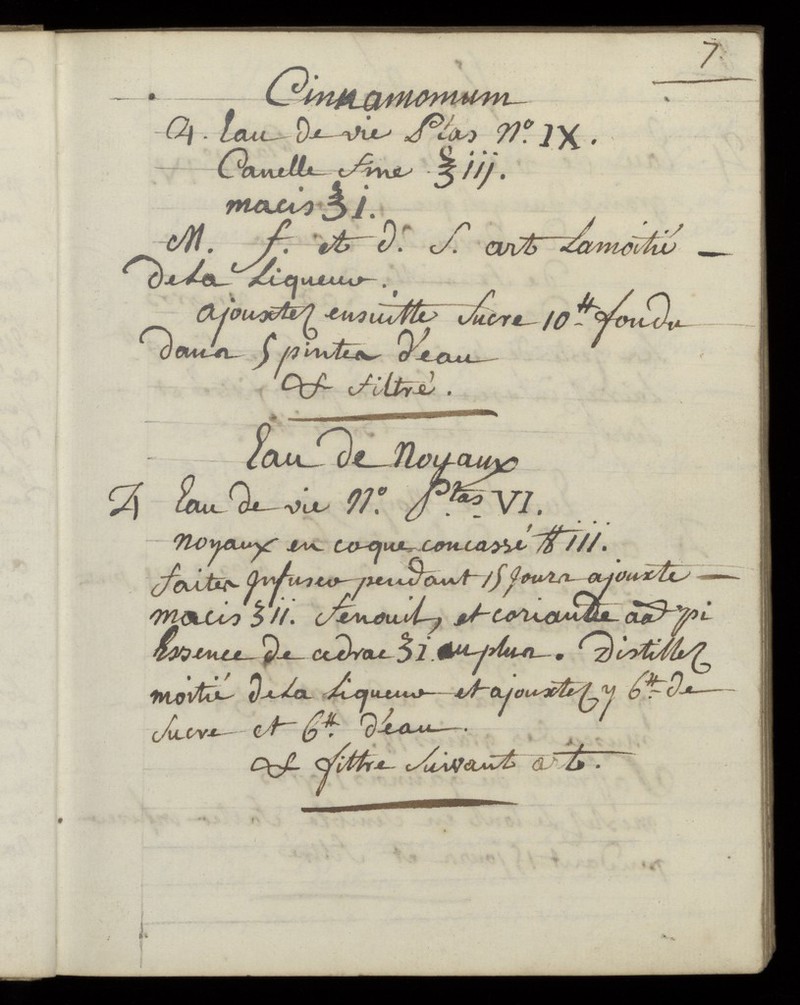 7.
Cinnamomum
♃. Eau de vie Ptas N.º IX.
Canelle fine ℥ iij.
macis ℥ i.
M. f. et d. S. art Lamoitié —
de La Liqueur.
ajouxtez ensuitte Sucre 10 ₶ fondu
dans 5 pintes d'eau
& filtré.
Eau de Noyaux
♃ Eau de vie N.º Ptas VI.
noyaux en coque concassé ℔ iii.
faites Jnfuser pendant 15 Jours ajouxte —
macis ʒ ii. fenouil, et coriandre aa pi
Essence de cedrac ʒ i. au plus. Distillez
moitié de La Liqueur et ajouxtez y 6 ₶ de
Sucre et 6 ₶ d'eau.
& filtre Suivant art.